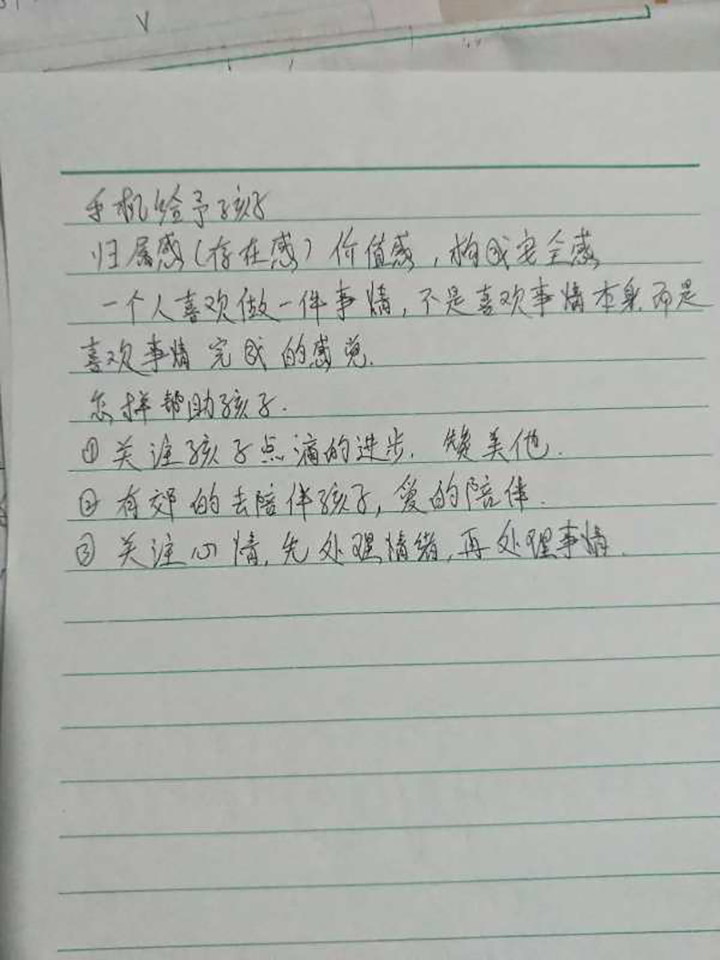 手机给予孩子
归属感(存在感)价值感,构成安全感
一个人喜欢做一件事情,不是喜欢事情本身而是
喜欢事情完成的感觉.
怎样帮助孩子.
①关注孩子点滴的进步.赞美他.
②有效的去陪伴孩子,爱的陪伴.
③关注心情,先处理情绪,再处理事情.